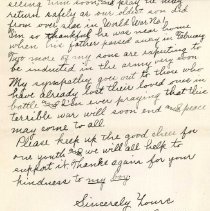 seeing him soon, and pray he may
return safely as our oldest son did
from over also in World War No 1
I'm so thankful he was near home
when his father passed away in February
Two more of my sons are expecting to
be inducted in the army very soon
My sympathy goes out to those who
have already lost their loved ones in
battle and I am ever praying that this
terrible war will soon end and peace
may come to all.
Please keep up the good cheer for
our youth and we will all help to
support it. Thanks again for your
kindness to my boy
Sincerely Yours